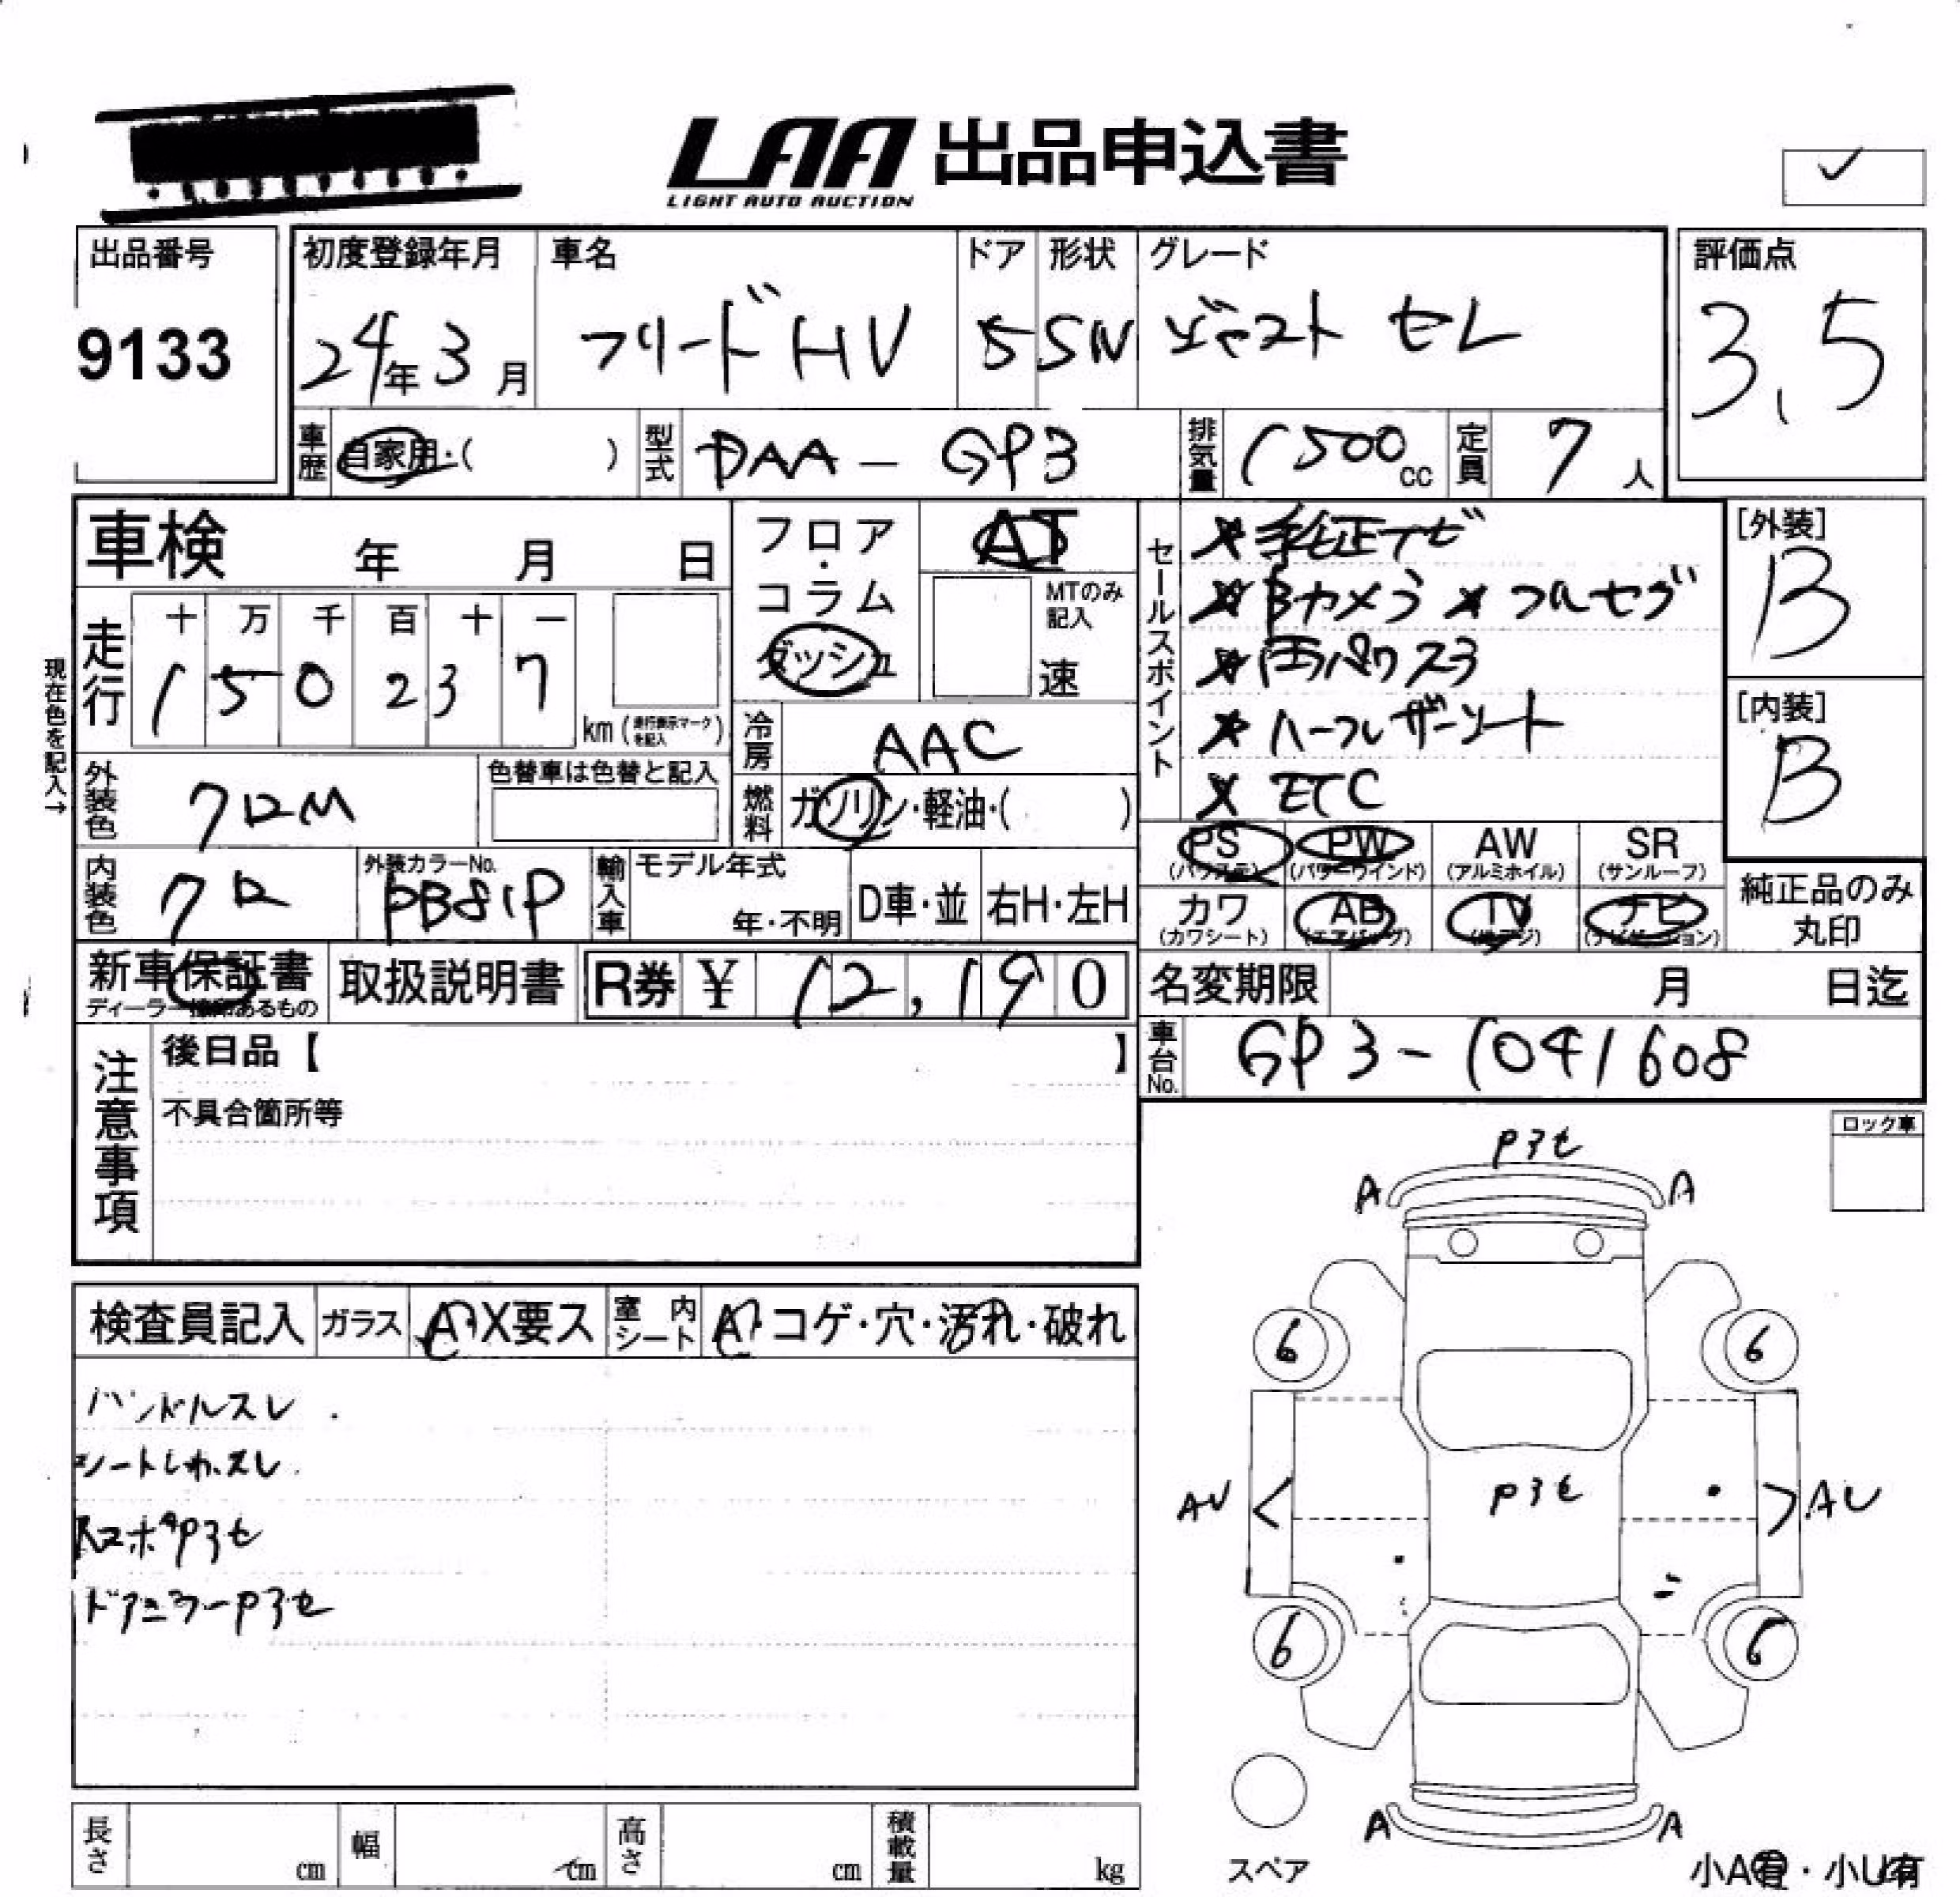 LAA 出品申込書
LIGHT AUTO AUCTION
出品番号
9133
初度登録年月
24年3月
車名
フリードHV
ドア
5
形状
SN
グレード
ジャスト セレ
評価点
3.5
車歴
自家用・( )
型式
DAA - GP3
排気量
1500cc
定員
7人
車検 年 月 日
走行
十 万 千 百 十 一
1 5 0 2 3 7
km (走行表示マークを記入)
現在色を記入→
フロア・コラム
ダッシュ
AT
MTのみ記入
速
冷房
AAC
燃料
ガソリン・軽油・( )
セールスポイント
純正ナビ
Bカメラ フルセグ
両パワスラ
ハーフレザーシート
ETC
[外装]
B
[内装]
B
外装色
クロM
色替車は色替と記入
内装色
クロ
外装カラーNo.
PB81P
輸入車
モデル年式
年・不明
D車・並
右H・左H
PS (パワステ)
PW (パワーウインド)
AW (アルミホイル)
SR (サンルーフ)
カワ (カワシート)
AB (エアバッグ)
TV (テレビ)
ナビ (ナビゲーション)
純正品のみ丸印
新車保証書
取扱説明書
R券 ¥ 12,190
名変期限 月 日迄
車台No.
GP3-1041608
注意事項
後日品【 】
不具合箇所等
ロック車
検査員記入
ガラス
A・X要ス
室内シート
A・コゲ・穴・汚れ・破れ
ハンドルスレ
シートしわ、スレ
ドアミラーPヨセ
Pヨセ
A A
6 6
AU AU
Pヨセ
6 6
A A
スペア
小A有・小U有
長さ cm
幅 cm
高さ cm
積載量 kg